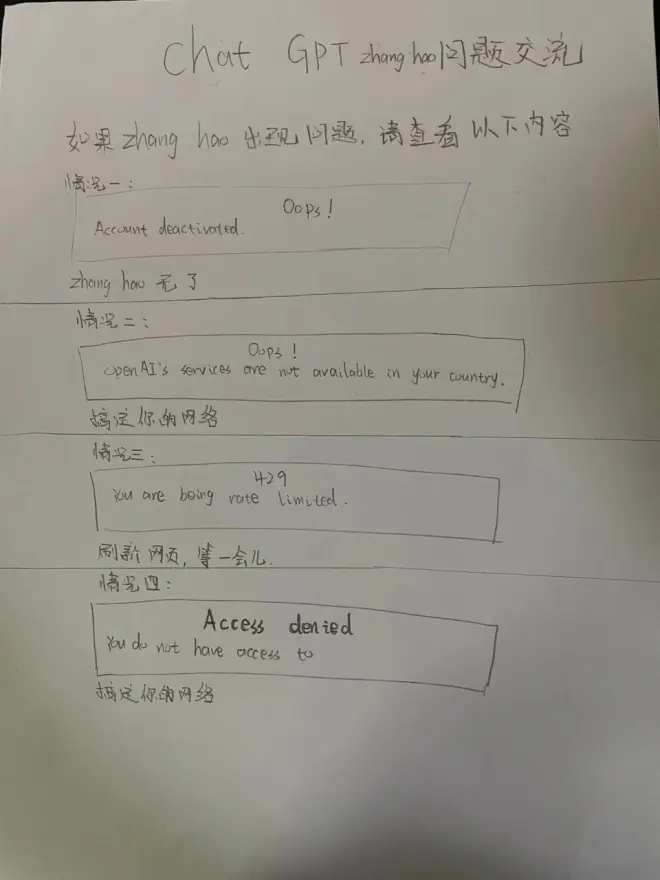 Chat GPT zhang hao问题交流
如果 zhang hao 出现问题,请查看以下内容
情况一:
Oops!
Account deactivated.
zhang hao 无了
情况二:
Oops!
OpenAI's services are not available in your country.
搞定你的网络
情况三:
429
You are being rate limited.
刷新网页,等一会儿.
情况四:
Access denied
You do not have access to
搞定你的网络